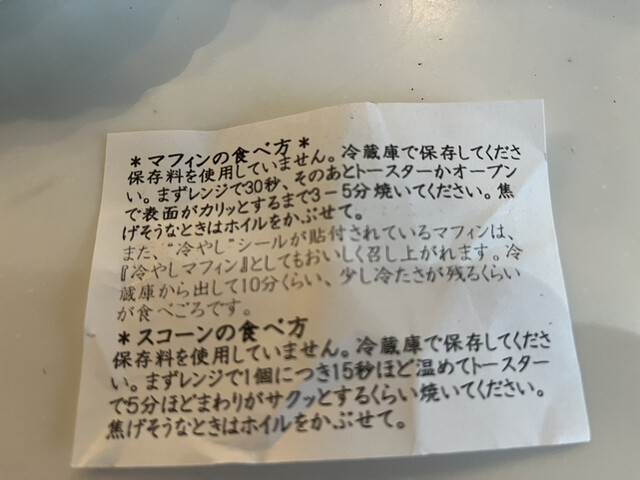 ＊マフィンの食べ方＊
保存料を使用していません。冷蔵庫で保存してくださ
い。まずレンジで30秒、そのあとトースターかオーブン
で表面がカリッとするまで3－5分焼いてください。焦
げそうなときはホイルをかぶせて。
また、“冷やし”シールが貼付されているマフィンは、
『冷やしマフィン』としてもおいしく召し上がれます。冷
蔵庫から出して10分くらい、少し冷たさが残るくらい
が食べごろです。
＊スコーンの食べ方
保存料を使用していません。冷蔵庫で保存してくださ
い。まずレンジで1個につき15秒ほど温めてトースター
で5分ほどまわりがサクッとするくらい焼いてください。
焦げそうなときはホイルをかぶせて。